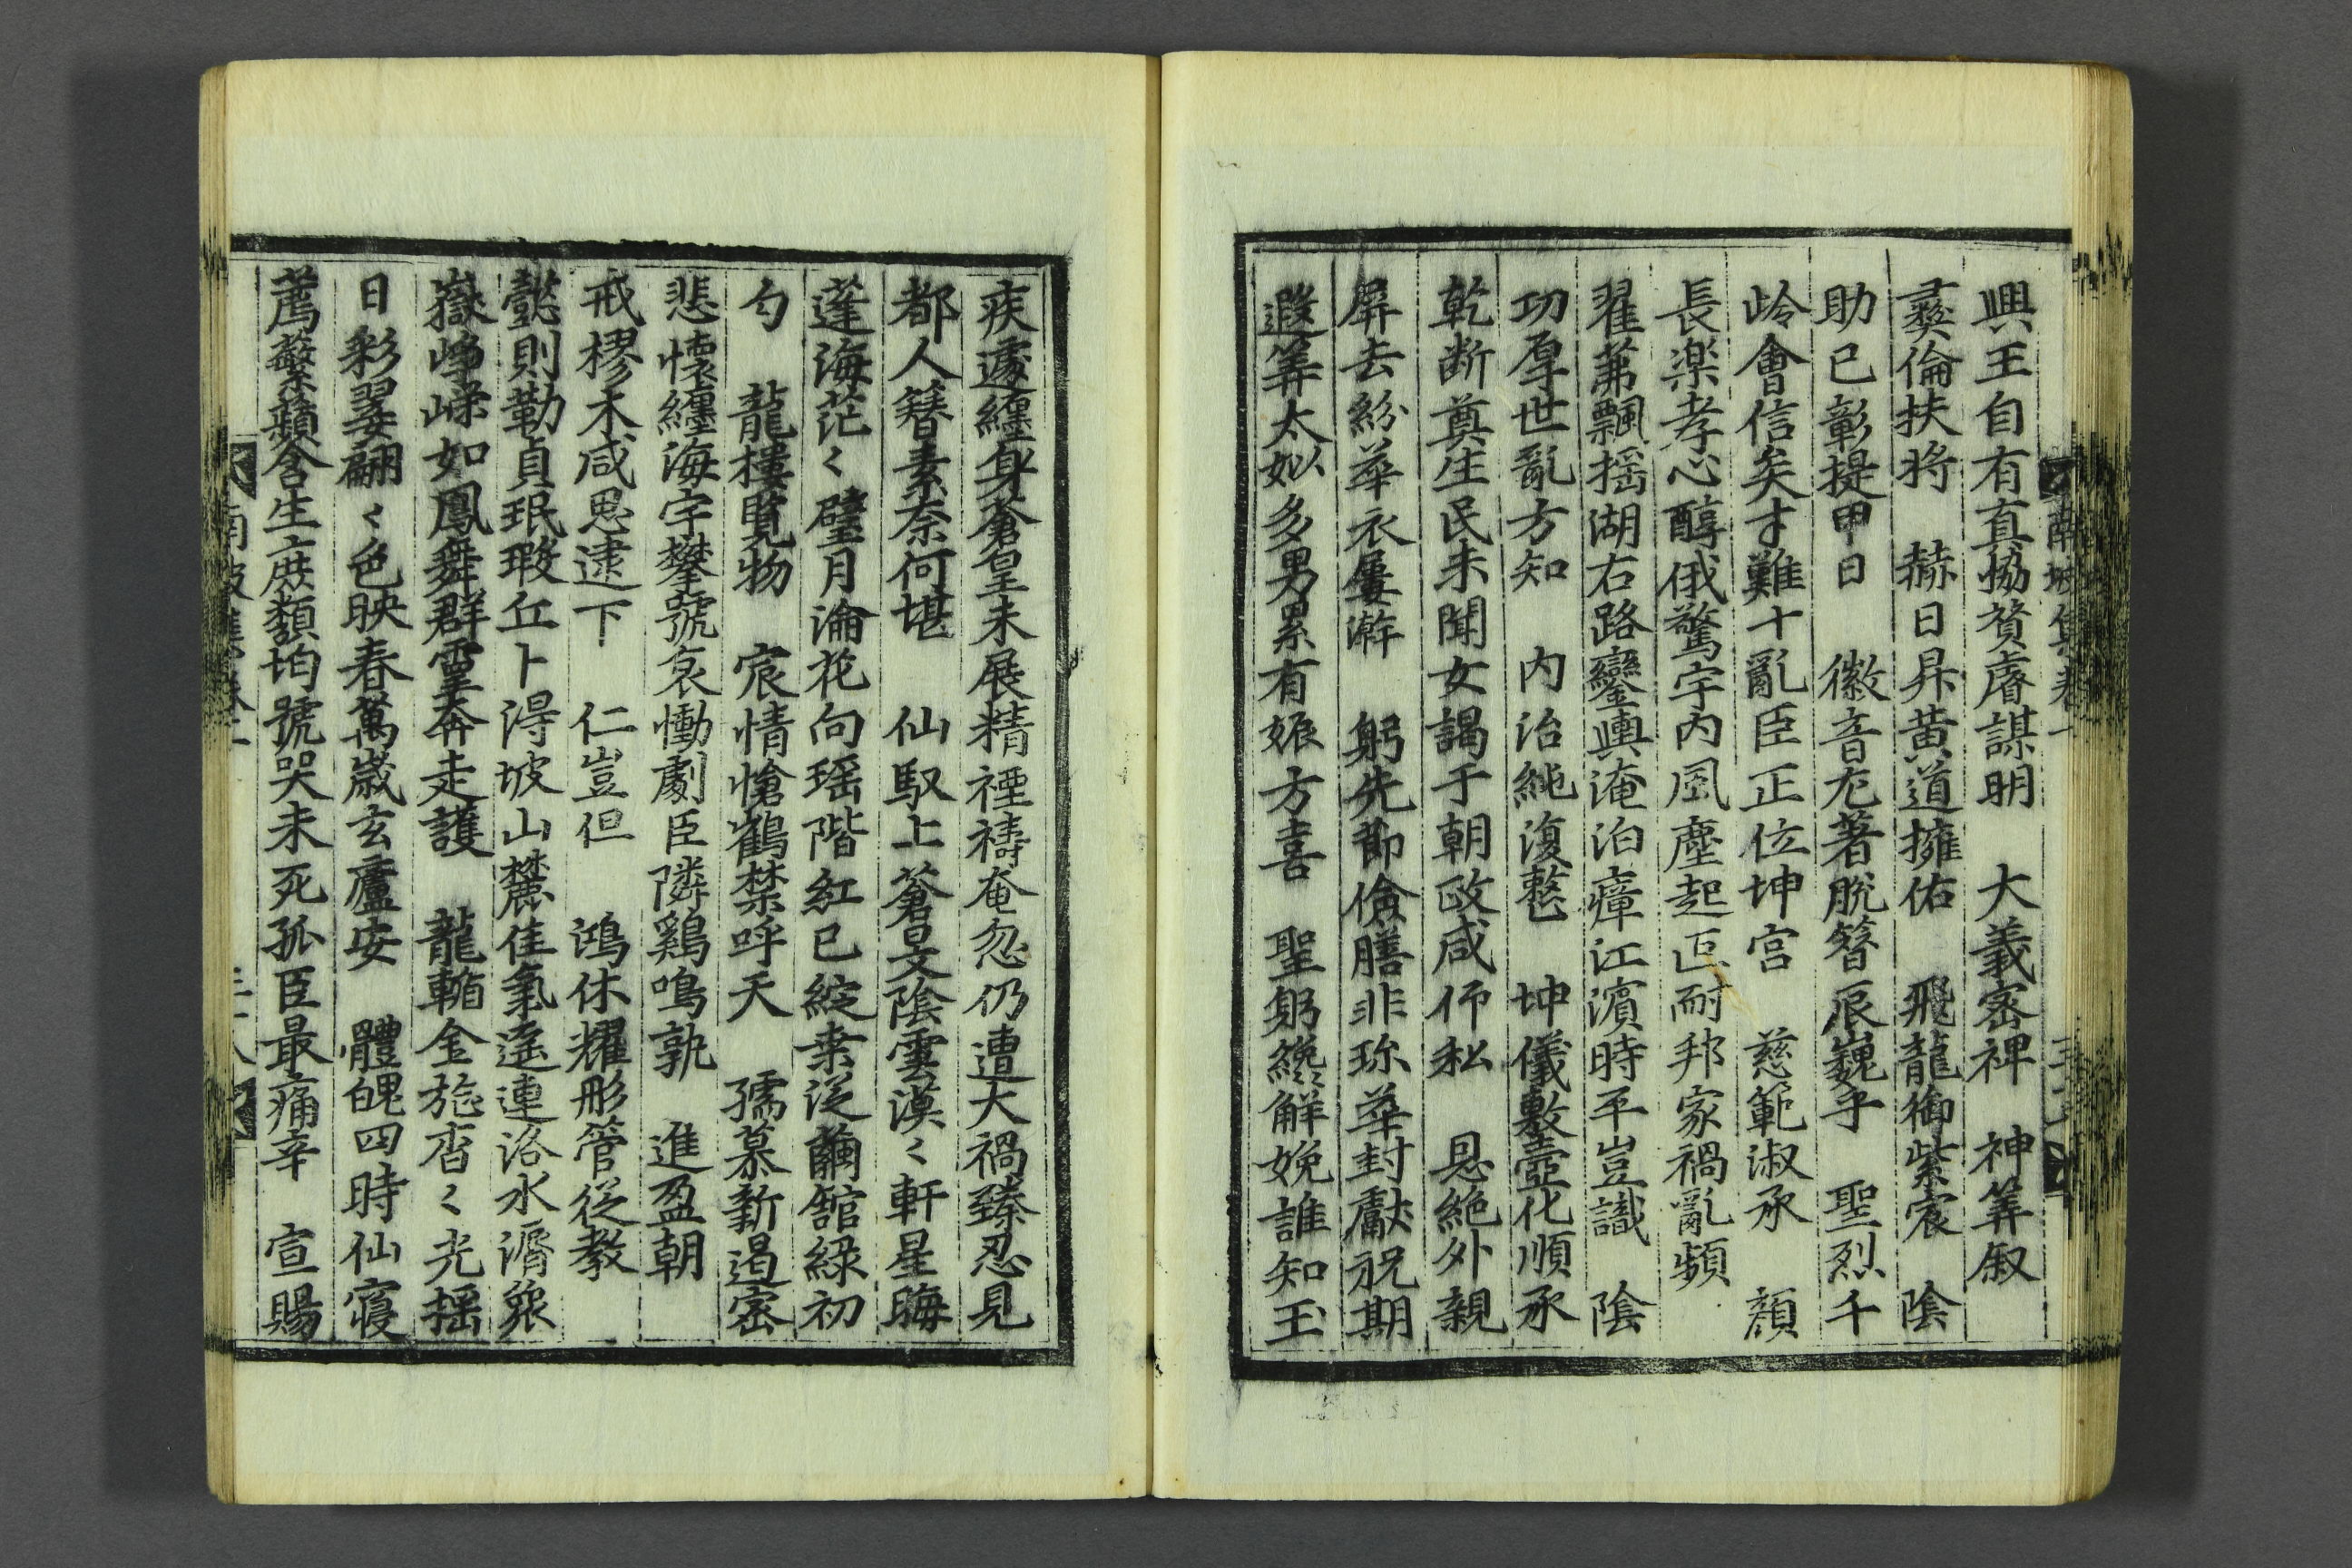 興王自有真協贊睿謀明　大義密裨　神筭叙
彛倫扶將　赫日昇黃道擁佑　飛龍御紫宸　陰
助已彰提甲日　徽音尤著脫簪辰巍乎　聖烈千
岭會信矣才難十亂臣正位坤宮　慈範淑承　顔
長楽孝心醇俄驚宇內風塵起叵耐邦家禍亂頻
翟茀飄揺湖右路鑾輿淹泊瘴江濱時平豈識　陰
功厚世亂方知　內治純復整　坤儀敷壼化順承
乾断奠生民未聞女謁于朝政咸仰私　恩絶外親
屏去紛華衣屢澣　躬先節儉膳非珎華封獻祝期
遐筭太姒多男累有娠方喜　聖躬纔觧娩誰知玉
南坡集卷一
疾遽纏身蒼皇未展精禋禱奄忽仍遭大禍臻忍見
都人簮素柰何堪　仙馭上蒼旻陰雲漠〻軒星晦
蓬海茫〻璧月淪花向瑶階紅已綻桒従繭舘綠初
勻　龍樓覧物　宸情愴鶴禁呼天　孺慕新遏密
悲懷纏海宇攀號哀慟劇臣隣鷄鳴孰　進盈朝
戒樛木咸思逮下　仁豈但　鴻休耀彤管従教
懿則勒貞珉瑕丘卜淂坡山麓佳氣遥連洛水漘衆
嶽崢嶸如鳳舞群靈奔走護　龍輴金旐杳〻光揺
日彩翣翩〻色映春萬歲玄廬安　體魄四時仙寢
薦蘩蘋含生庶類均號哭未死孤臣最痛辛　宣賜